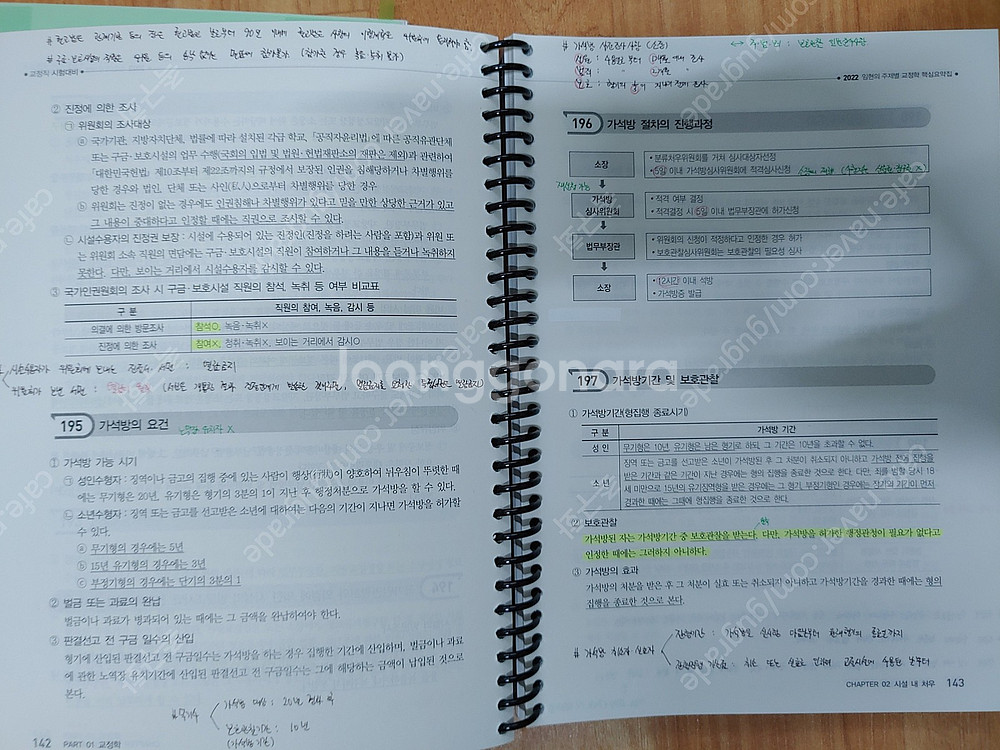 • 교정직 시험대비 •
② 진정에 의한 조사
㉠ 위원회의 조사대상
ⓐ 국가기관, 지방자치단체, 법률에 따라 설치된 각급 학교, 「공직자윤리법」에 따른 공직유관단체
또는 구금·보호시설의 업무 수행(국회의 입법 및 법원·헌법재판소의 재판은 제외)과 관련하여
「대한민국헌법」 제10조부터 제22조까지의 규정에서 보장된 인권을 침해당하거나 차별행위를
당한 경우와 법인, 단체 또는 사인(私人)으로부터 차별행위를 당한 경우
ⓑ 위원회는 진정이 없는 경우에도 인권침해나 차별행위가 있다고 믿을 만한 상당한 근거가 있고
그 내용이 중대하다고 인정할 때에는 직권으로 조사할 수 있다.
㉡ 시설수용자의 진정권 보장 : 시설에 수용되어 있는 진정인(진정을 하려는 사람을 포함)과 위원 또
는 위원회 소속 직원의 면담에는 구금·보호시설의 직원이 참여하거나 그 내용을 듣거나 녹취하지
못한다. 다만, 보이는 거리에서 시설수용자를 감시할 수 있다.
③ 국가인권위원회의 조사 시 구금·보호시설 직원의 참석, 녹취 등 여부 비교표
구 분 직원의 참여, 녹음, 감시 등
의결에 의한 방문조사 참석O, 녹음·녹취×
진정에 의한 조사 참여×, 청취·녹취×, 보이는 거리에서 감시O
195 가석방의 요건
① 가석방 가능 시기
㉠ 성인수형자 : 징역이나 금고의 집행 중에 있는 사람이 행상(行狀)이 양호하여 뉘우침이 뚜렷한 때
에는 무기형은 20년, 유기형은 형기의 3분의 1이 지난 후 행정처분으로 가석방을 할 수 있다.
㉡ 소년수형자 : 징역 또는 금고를 선고받은 소년에 대하여는 다음의 기간이 지나면 가석방을 허가할
수 있다.
ⓐ 무기형의 경우에는 5년
ⓑ 15년 유기형의 경우에는 3년
ⓒ 부정기형의 경우에는 단기의 3분의 1
② 벌금 또는 과료의 완납
벌금이나 과료가 병과되어 있는 때에는 그 금액을 완납하여야 한다.
③ 판결선고 전 구금 일수의 산입
형기에 산입된 판결선고 전 구금일수는 가석방을 하는 경우 집행한 기간에 산입하며, 벌금이나 과료
에 관한 노역장 유치기간에 산입된 판결선고 전 구금일수는 그에 해당하는 금액이 납입된 것으로
본다.
가석방 대상 : 20년 경과 후
보호관찰기간 : 10년
(가석방기간)
142 PART 01 교정학
# 가석방
• 2022 임현의 주제별 교정학 핵심요약집 •
196 가석방 절차의 진행과정
소장
• 분류처우위원회를 거쳐 심사대상자선정
• 5일 이내 가석방심사위원회에 적격심사신청
가석방
심사위원회
• 적격 여부 결정
• 적격결정 시 5일 이내 법무부장관에 허가신청
법무부장관
• 위원회의 신청이 적정하다고 인정한 경우 허가
• 보호관찰심사위원회는 보호관찰의 필요성 심사
소장
• 12시간 이내 석방
• 가석방증 발급
197 가석방기간 및 보호관찰
① 가석방기간(형집행 종료시기)
구 분 가석방 기간
성 인 무기형은 10년, 유기형은 남은 형기로 하되, 그 기간은 10년을 초과할 수 없다.
소 년 징역 또는 금고를 선고받은 소년이 가석방된 후 그 처분이 취소되지 아니하고 가석방 전에 집행을
받은 기간과 같은 기간이 지난 경우에는 형의 집행을 종료한 것으로 한다. 다만, 죄를 범할 당시 18
세 미만으로 15년의 유기징역형을 받은 경우에는 그 형기, 부정기형인 경우에는 장기의 기간이 먼저
경과한 때에는 그때에 형집행을 종료한 것으로 한다.
② 보호관찰
가석방된 자는 가석방기간 중 보호관찰을 받는다. 다만, 가석방을 허가한 행정관청이 필요가 없다고
인정한 때에는 그러하지 아니하다.
③ 가석방의 효과
가석방의 처분을 받은 후 그 처분이 실효 또는 취소되지 아니하고 가석방기간을 경과한 때에는 형의
집행을 종료한 것으로 본다.
CHAPTER 02 시설 내 처우 143
Joonggonara